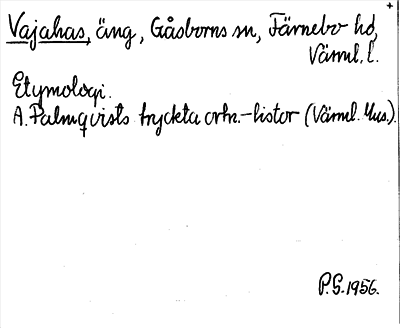 Vajahas, äng, Gåsborns sn, Färnebo hd,
Värml. l.
Etymologi.
A. Palmqvists tryckta ortn.-listor (Värml. Mus.).
P.G. 1956.